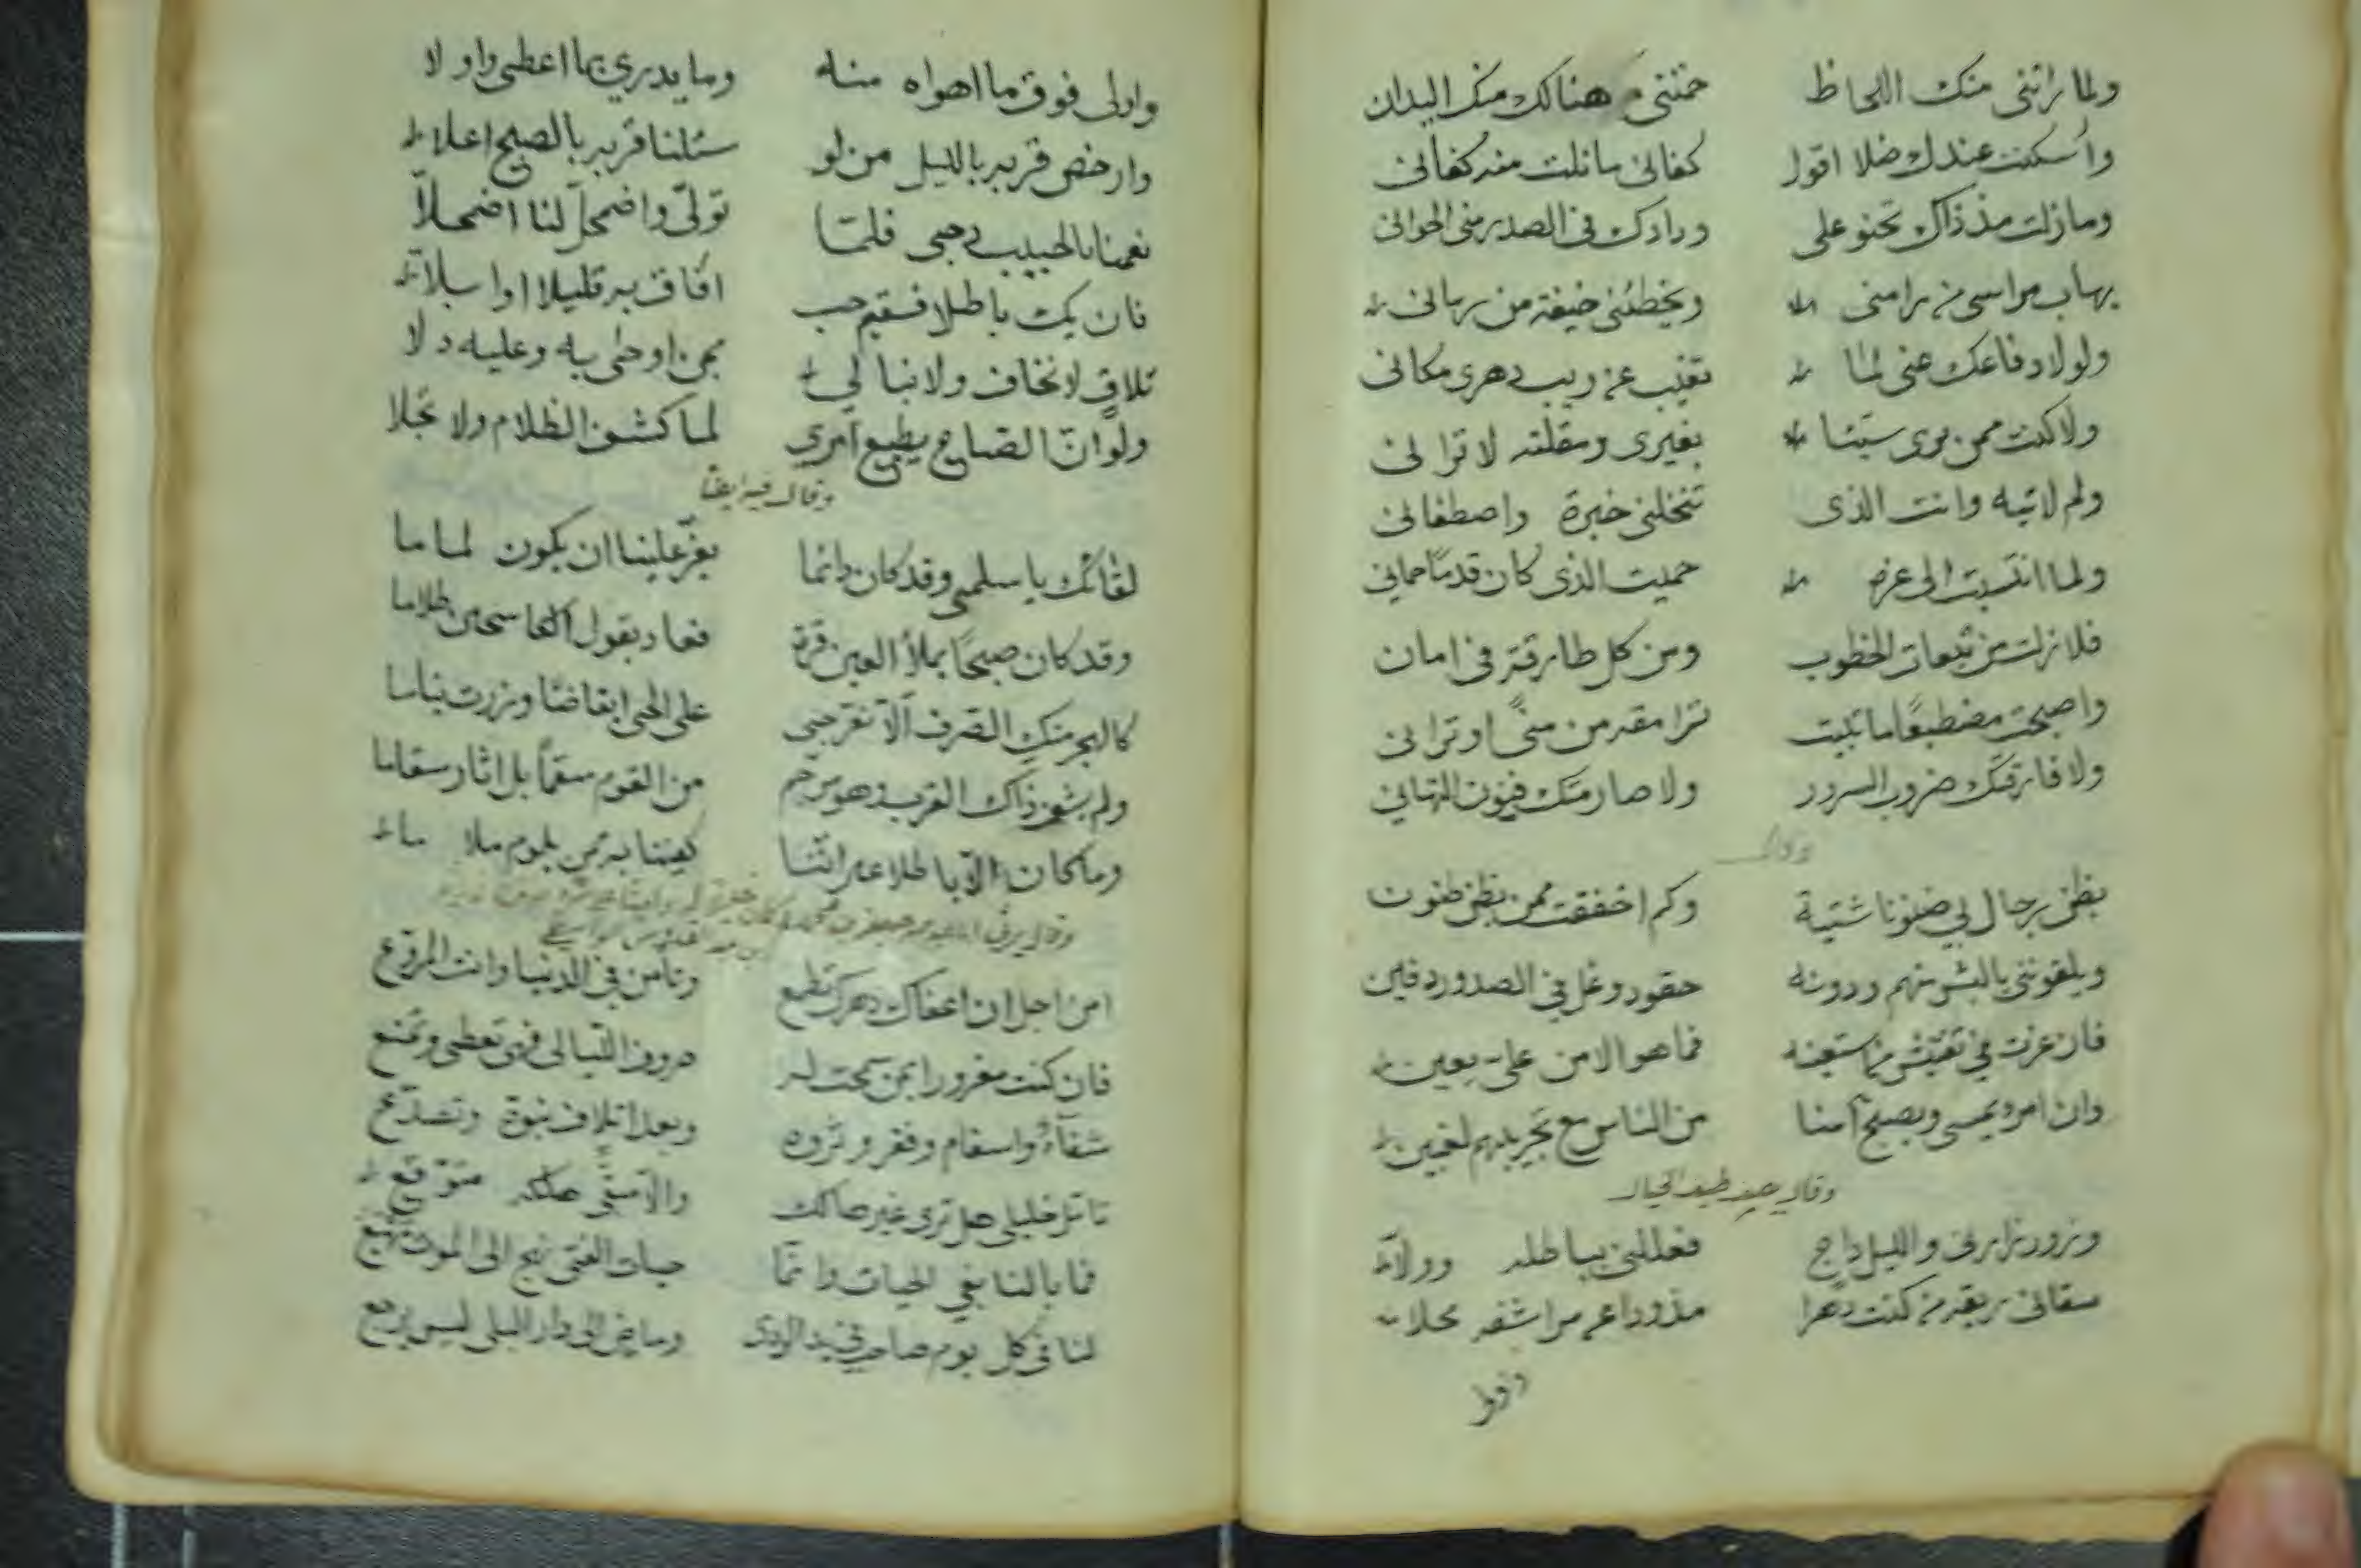 ولما رأتني منك اللحاظ حمتني هنالك منك اليدان
وأسكنت عندك ضلا اقول كفاني ما نلت منه كفاني
وما زلت مذ ذاك تحنو على في الصدر مني الحواني
يهاب مرامي من رامني ويخطئني خيفة من رماني
ولولا دفاعك عني لما تغيب عن ريب دهري مكاني
ولا كنت ممن يرى سيئا بغيري ومقلته لا تراني
ولم لا تيه وانت الذي تنخلني خبرة واصطفاني
ولما انتسبت الى عزه حميت الذي كان قدما حماني
فلا زلت من تبعات الخطوب ومن كل طارقة في امان
واصبحت مضطبعا ما بقيت من منى او تراني
ولا فارقتك ضروب السرور ولا صارمتك فنون التهاني
وقال
يظن رجال بي ضنونا شتيتة وكم اخفقت ممن يظن ظنون
ويلقونني بالبشر منهم ودونه حقود وغل في الصدور دفين
فما هو الا من على يعين
وان امرء يمسي ويصبح آمنا من الناس مع تجريبهم لغبين
وقال يصف طيف الخيال
وزور زارني والليل داج فعللني بباطله وولا
سقاني ريقه من كنت دهرا مذودا عن مراشفه محلا
واولى فوق ما اهواه منه وما يدري بما اعطى واولا
وارخص قربه بالليل من لو سئلنا قربه بالصبح اعلا
نعمنا بالحبيب دجى فلما تولى واضمحل لنا اضمحلا
فان يك باطلا فسقيم حب افاق به قليلا او ابلا
تلاق لا نخاف ولا نبالي بمن اوحى به وعليه دلا
ولو ان الصباح يطيع امري لما كشف الظلام ولا تجلا
وقال فيه ايضا
لقائك يا سلمى وقد كان دائما يعز علينا ان يكون لماما
وقد كان صبحا يملأ العين قرة فعاد يقول الكاشحين ظلاما
الا تقربي على الحي ايقاضا وزرت نياما
ولم يشف ذاك القرب من القوم سقما بل اثار سقاما
وما كان الا باطلا غير اننا كفينا به ممن يلوم ملاما
وقال يرثي
امن اجل ان اعفاك دهرك تطمع وتأمن في الدنيا وانت المروع
فان كنت مغرورا بمن سمحت له صروف الليالي فهي تعطي وتمنع
شفاء واسقام وفقر وثروة وبعد ائتلاف نبوة وتصدع
تأمل خليلي هل ترى غير هالك والا مبقى هلكه متوقع
فما بالنا نبغي الحيات وانما حيات الفتى نهج الى الموت مهيع
لنا في كل يوم صاحب في يد الردى وماض الى دار البلى ليس يرجع